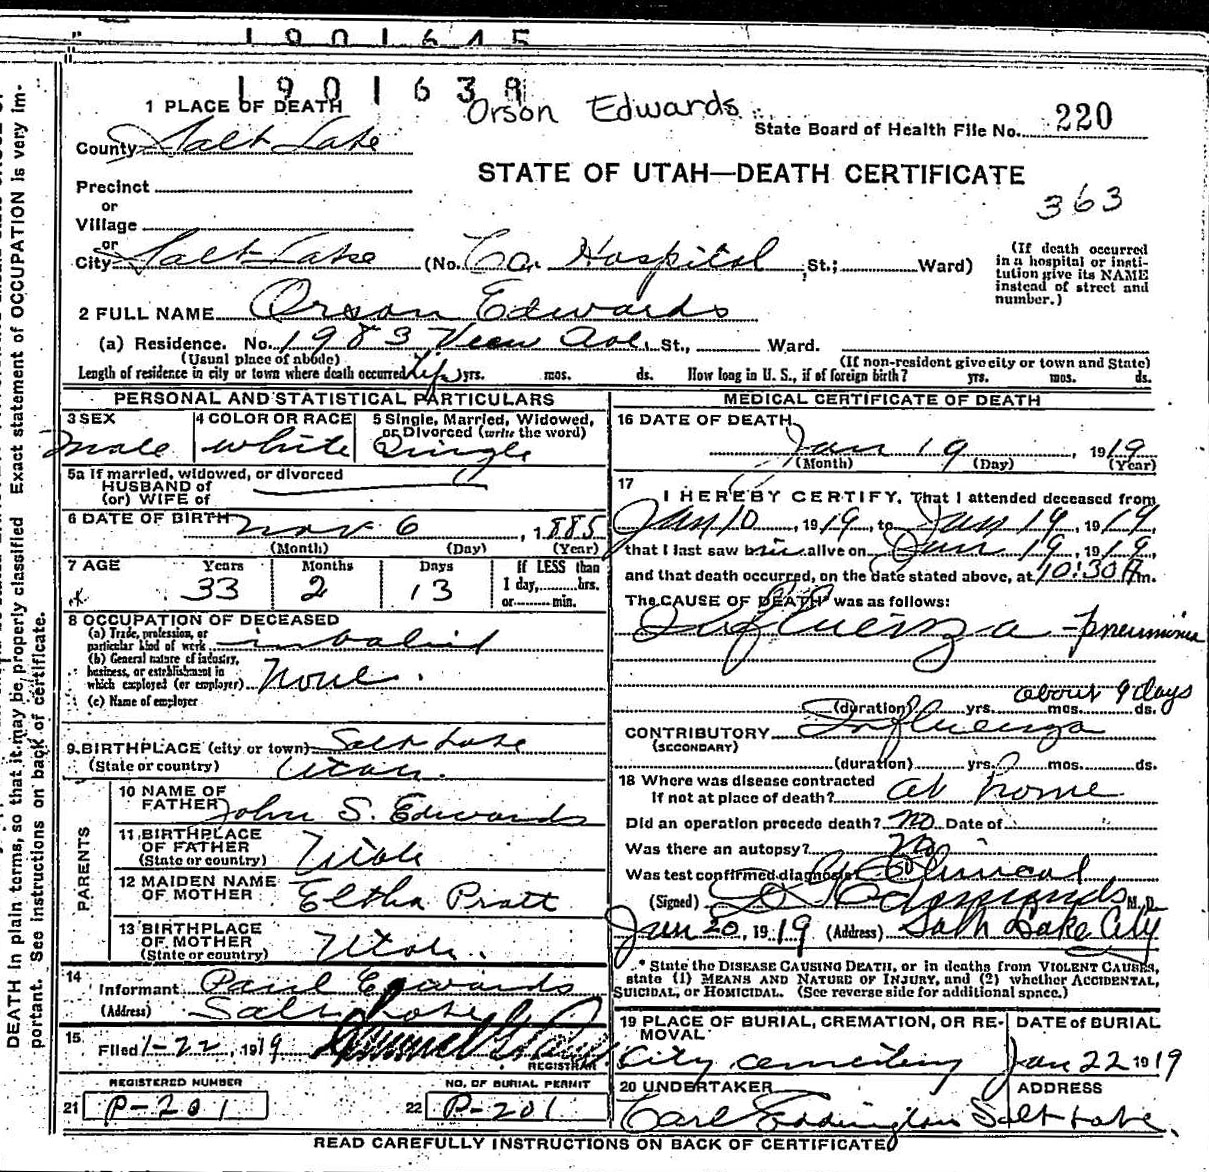 1901645
1901639
Orson Edwards
1 PLACE OF DEATH
State Board of Health File No. 220
County Salt Lake
STATE OF UTAH—DEATH CERTIFICATE
Precinct
363
or
Village
or
City Salt Lake (No. Co. Hospital, St.; Ward)
(If death occurred in a hospital or insti-
tution give its NAME
instead of street and
number.)
2 FULL NAME Orson Edwards
(a) Residence. No. 1983 View Ave. St., Ward.
(Usual place of abode) (If non-resident give city or town and State)
Length of residence in city or town where death occurred Life yrs. mos. ds. How long in U. S., if of foreign birth? yrs. mos. ds.
PERSONAL AND STATISTICAL PARTICULARS
3 SEX 4 COLOR OR RACE 5 Single, Married, Widowed,
or Divorced (write the word)
male white Single
5a If married, widowed, or divorced
HUSBAND of
(or) WIFE of
6 DATE OF BIRTH Nov 6, 1885
(Month) (Day) (Year)
7 AGE Years Months Days If LESS than
33 2 13 1 day, hrs.
or min.
8 OCCUPATION OF DECEASED
(a) Trade, profession, or
particular kind of work invalid
(b) General nature of industry,
business, or establishment in
which employed (or employer) None.
(c) Name of employer
9 BIRTHPLACE (city or town) Salt Lake
(State or country) Utah.
PARENTS
10 NAME OF
FATHER John S. Edwards
11 BIRTHPLACE
OF FATHER
(State or country) Utah
12 MAIDEN NAME
OF MOTHER Eltha Pratt
13 BIRTHPLACE
OF MOTHER
(State or country) Utah.
14
Informant Paul Edwards
(Address) Salt Lake
15
Filed 1-22, 1919
REGISTRAR
REGISTERED NUMBER NO. OF BURIAL PERMIT
21 P-201 22 P-201
MEDICAL CERTIFICATE OF DEATH
16 DATE OF DEATH
Jan 19, 1919
(Month) (Day) (Year)
17
I HEREBY CERTIFY, That I attended deceased from
Jan 10, 1919, to Jan 19, 1919,
that I last saw him alive on Jan 19, 1919,
and that death occurred, on the date stated above, at 10:30 A m.
The CAUSE OF DEATH* was as follows:
Influenza - pneumonia
about 9 days
(duration) yrs. mos. ds.
CONTRIBUTORY Influenza
(SECONDARY)
(duration) yrs. mos. ds.
18 Where was disease contracted
If not at place of death? at home
Did an operation precede death? no Date of
Was there an autopsy? No
Was test confirmed diagnosis Clinical
(Signed) Edmunds M. D.
Jan 20, 1919 (Address) Salt Lake City
* State the DISEASE CAUSING DEATH, or in deaths from VIOLENT CAUSES,
state (1) MEANS AND NATURE OF INJURY, and (2) whether ACCIDENTAL,
SUICIDAL, or HOMICIDAL. (See reverse side for additional space.)
19 PLACE OF BURIAL, CREMATION, OR RE-
MOVAL DATE of BURIAL
City cemetery Jan 22 1919
20 UNDERTAKER ADDRESS
Carl Eddington Salt Lake.
READ CAREFULLY INSTRUCTIONS ON BACK OF CERTIFICATE
DEATH in plain terms, so that it may be properly classified Exact statement of OCCUPATION is very im-
portant. See instructions on back of certificate.